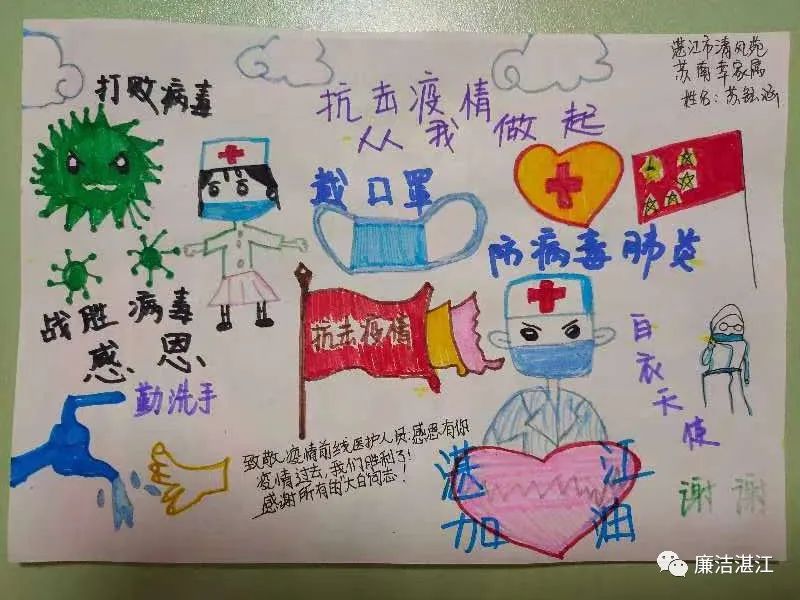 湛江市清风苑
苏南幸家属
姓名：苏钰涵
打败病毒
抗击疫情
从我做起
戴口罩
防病毒肺炎
战胜病毒
感恩
抗击疫情
白衣天使
勤洗手
致敬疫情前线医护人员：感恩有你
疫情过去，我们胜利了！
感谢所有的"大白"同志！
湛江
加油
谢谢
廉洁湛江